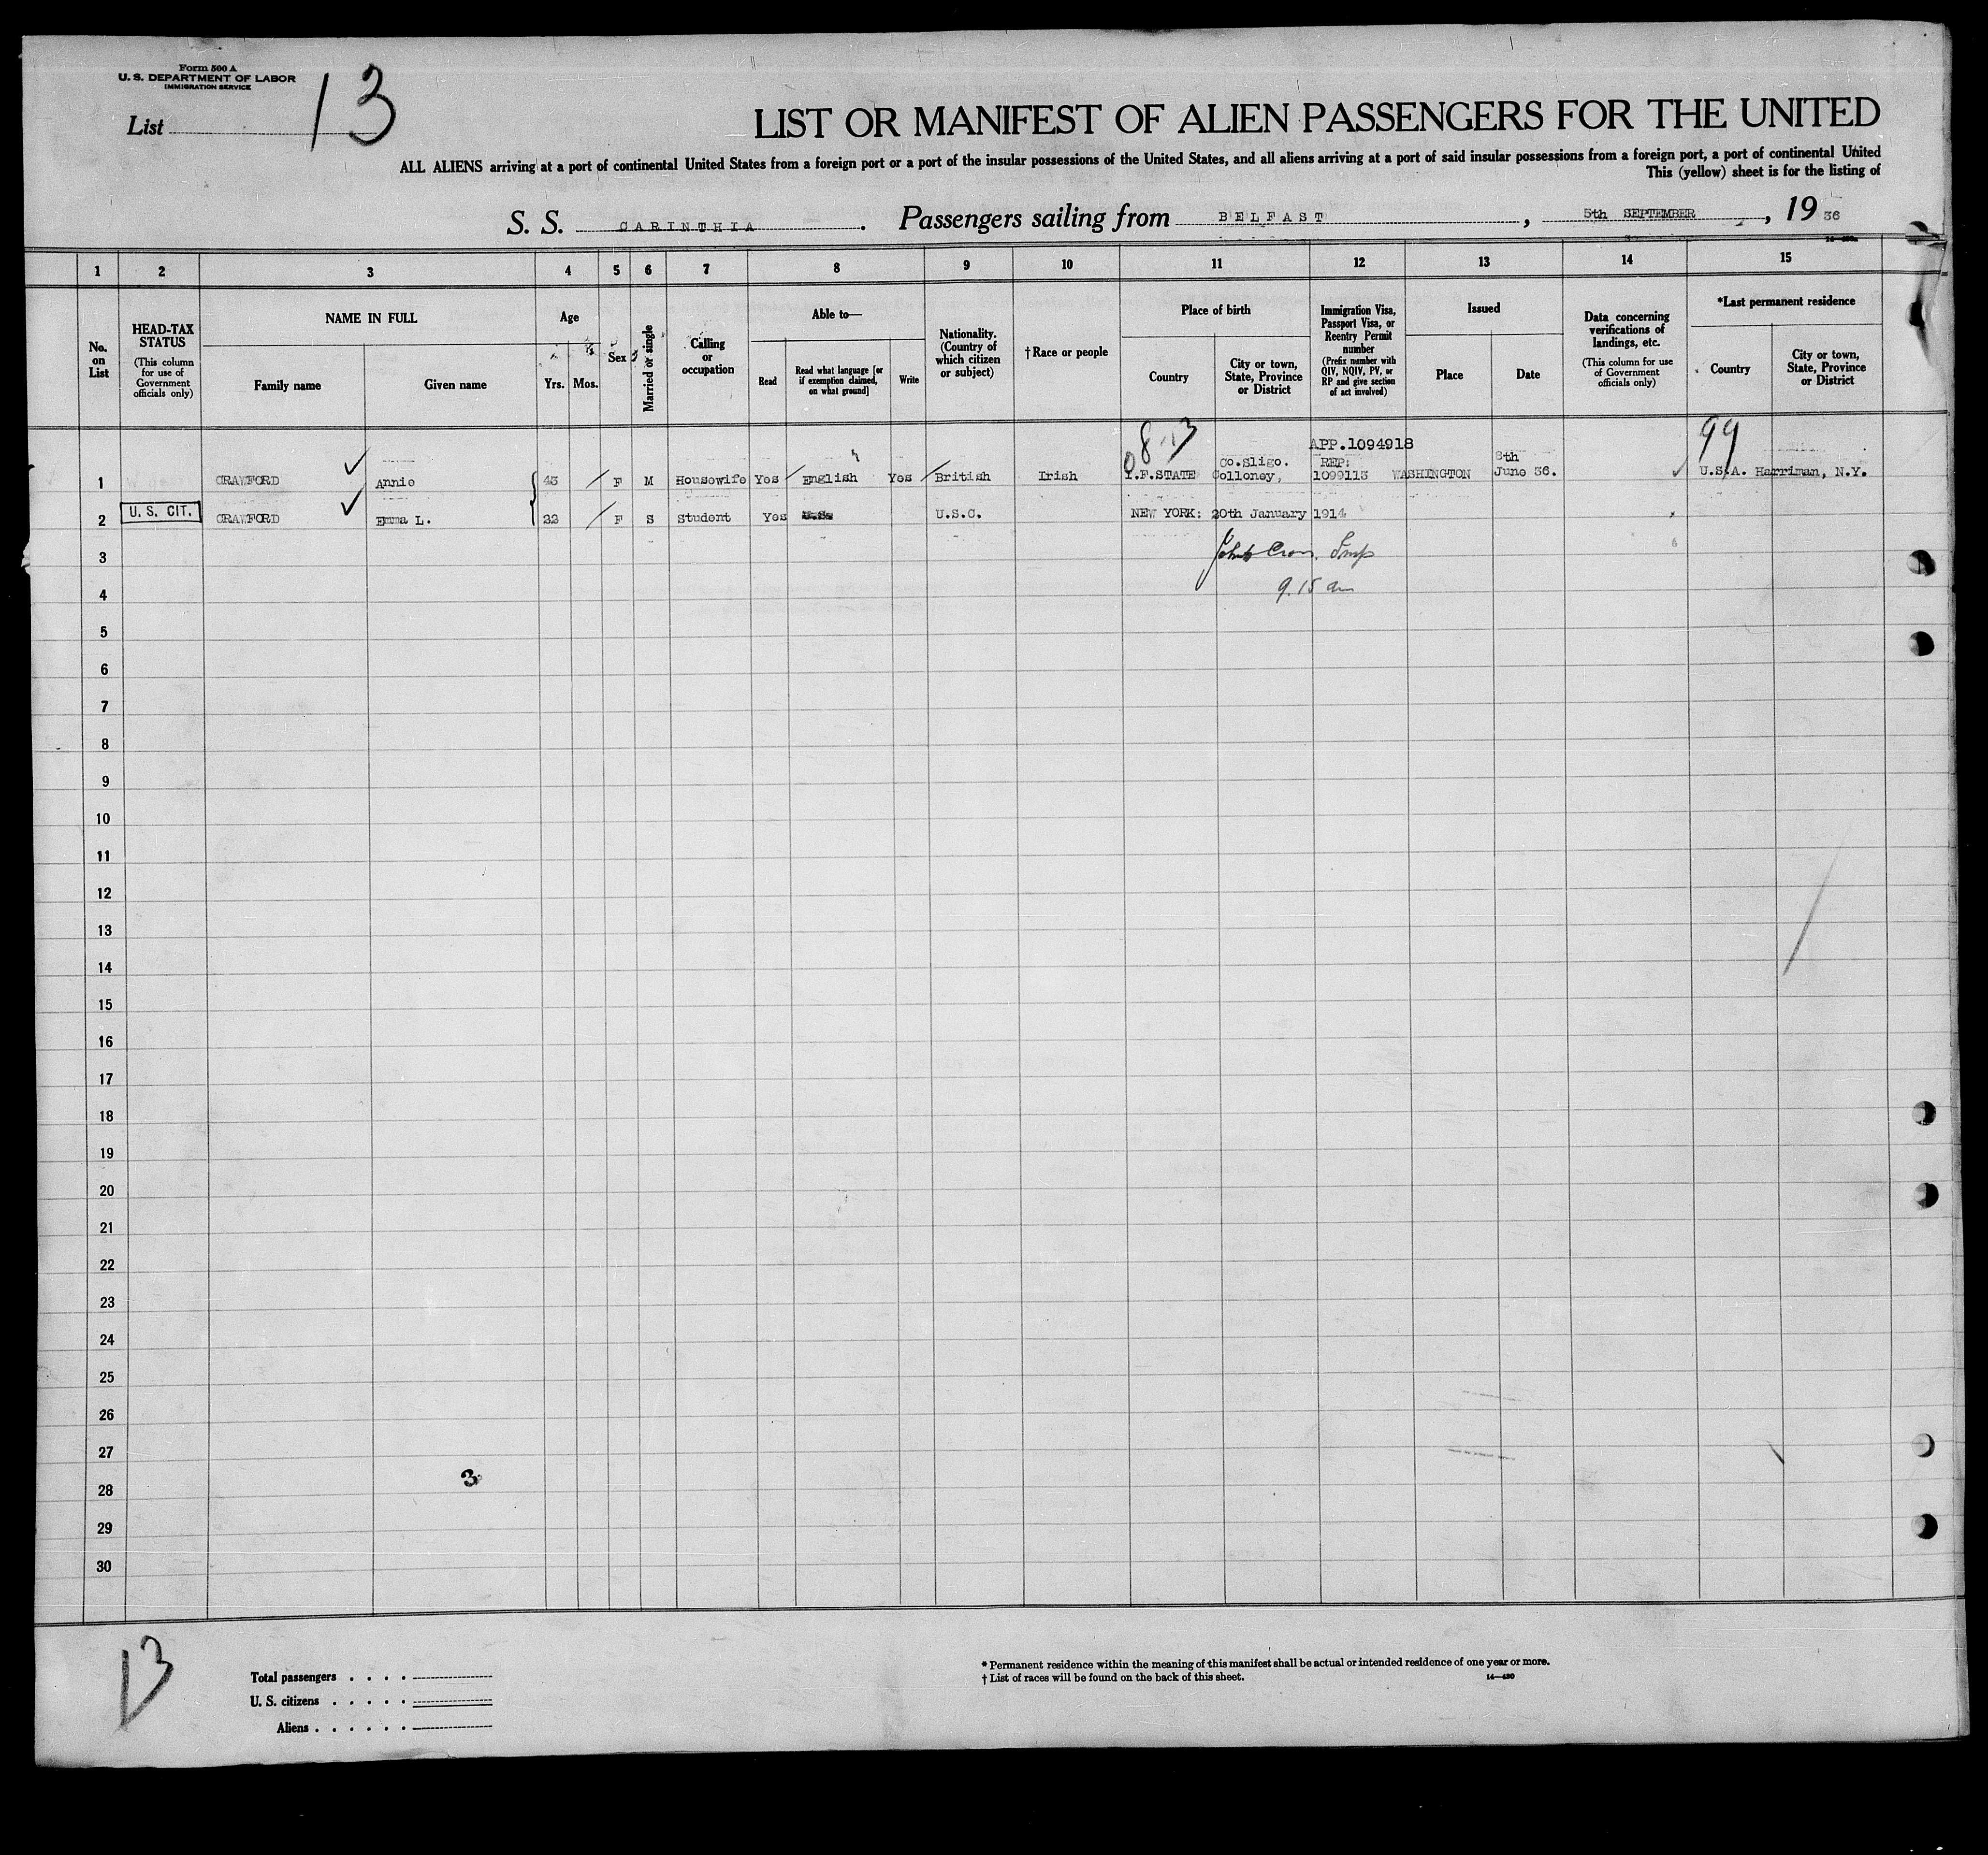 Form 500 A
U. S. DEPARTMENT OF LABOR
IMMIGRATION SERVICE
List 13
LIST OR MANIFEST OF ALIEN PASSENGERS FOR THE UNITED
ALL ALIENS arriving at a port of continental United States from a foreign port or a port of the insular possessions of the United States, and all aliens arriving at a port of said insular possessions from a foreign port, a port of continental United
This (yellow) sheet is for the listing of
S. S. CARINTHIA. Passengers sailing from BELFAST, 5th SEPTEMBER, 19 36
1 2 3 4 5 6 7 8 9 10 11 12 13 14 15
No. on List
HEAD-TAX STATUS
(This column for use of Government officials only)
NAME IN FULL
Family name Given name
Age
Yrs. Mos.
Sex
Married or single
Calling or occupation
Able to—
Read
Read what language [or if exemption claimed, on what ground]
Write
Nationality. (Country of which citizen or subject)
†Race or people
Place of birth
Country
City or town, State, Province or District
Immigration Visa, Passport Visa, or Reentry Permit number
(Prefix number with QIV, NQIV, PV, or RP and give section of act involved)
Issued
Place Date
Data concerning verifications of landings, etc.
(This column for use of Government officials only)
*Last permanent residence
Country
City or town, State, Province or District
8-13 APP.1094918 99
Co.Sligo. REP: 8th
1 CRAWFORD Annie 43 F M Housewife Yes English Yes British Irish I.F.STATE Colloney, 1099113 WASHINGTON June 36. U.S.A. Harriman, N.Y.
2 U. S. CIT. CRAWFORD Emma L. 22 F S Student Yes U.S.C. NEW YORK: 20th January 1914
3
9.15 am
4
5
6
7
8
9
10
11
12
13
14
15
16
17
18
19
20
21
22
23
24
25
26
27
3
28
29
30
13
Total passengers . . . .
U. S. citizens . . . . .
Aliens . . . . . .
* Permanent residence within the meaning of this manifest shall be actual or intended residence of one year or more.
† List of races will be found on the back of this sheet.
14—430